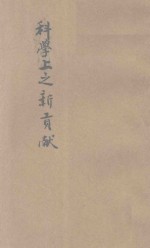 科學上之新貢献